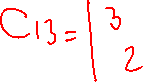 C13= | 3
2